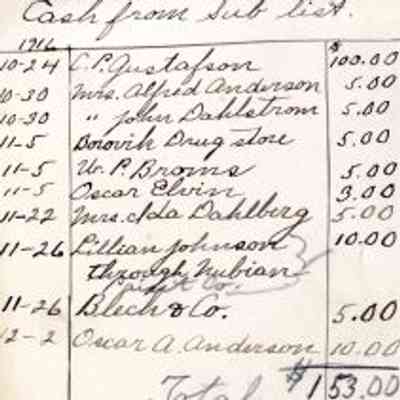 Cash from Sub list.
1916 $
10-24 C.P. Gustafson 100.00
10-30 Mrs. Alfred Anderson 5.00
10-30 " John Dahlstrom 5.00
11-5 Borovik Drug store 5.00
11-5 W. P. Broms 5.00
11-5 Oscar Elvin 3.00
11-22 Mrs. Ida Dahlberg 5.00
11-26 Lillian Johnson 10.00
through Nubian
Paint Co.
11-26 Blech & Co. 5.00
12-2 Oscar A. Anderson 10.00
Total $153.00